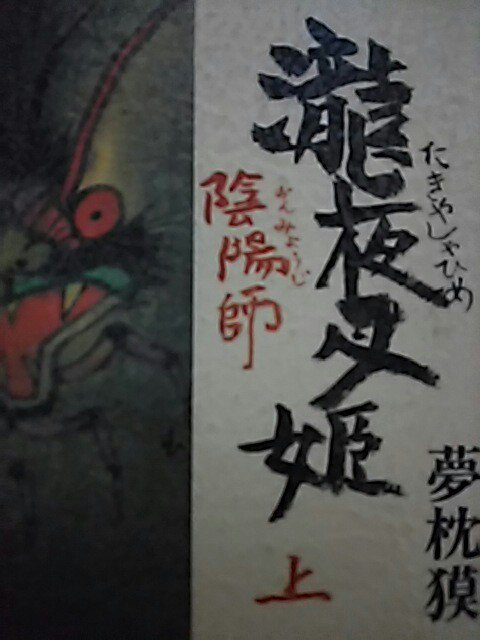 瀧夜叉姫
たきやしゃひめ
陰陽師
おんみょうじ
上
夢枕獏